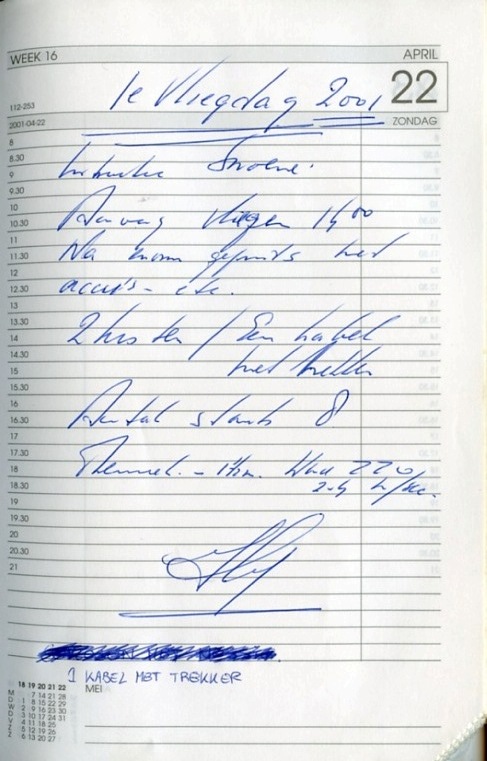 WEEK 16 APRIL
1e Vliegdag 2001 22
112-253
2001-04-22 ZONDAG
8
8.30
9
9.30
10
10.30 Aanvang vliegen 14.00
11
11.30 Na enorm gepruts met
12
12.30 accu's - etc.
13
13.30
14 2 / Een kabel
14.30
15 met trekker
15.30
16
16.30 Aantal starts 8
17
17.30
18 Thermiek. - Wind 220
18.30 2-4 m/sec.
19
19.30
20
20.30
21
1 KABEL MET TREKKER
MEI
18 19 20 21 22
M 7 14 21 28
D 1 8 15 22 29
W 2 9 16 23 30
D 3 10 17 24 31
V 4 11 18 25
Z 5 12 19 26
Z 6 13 20 27